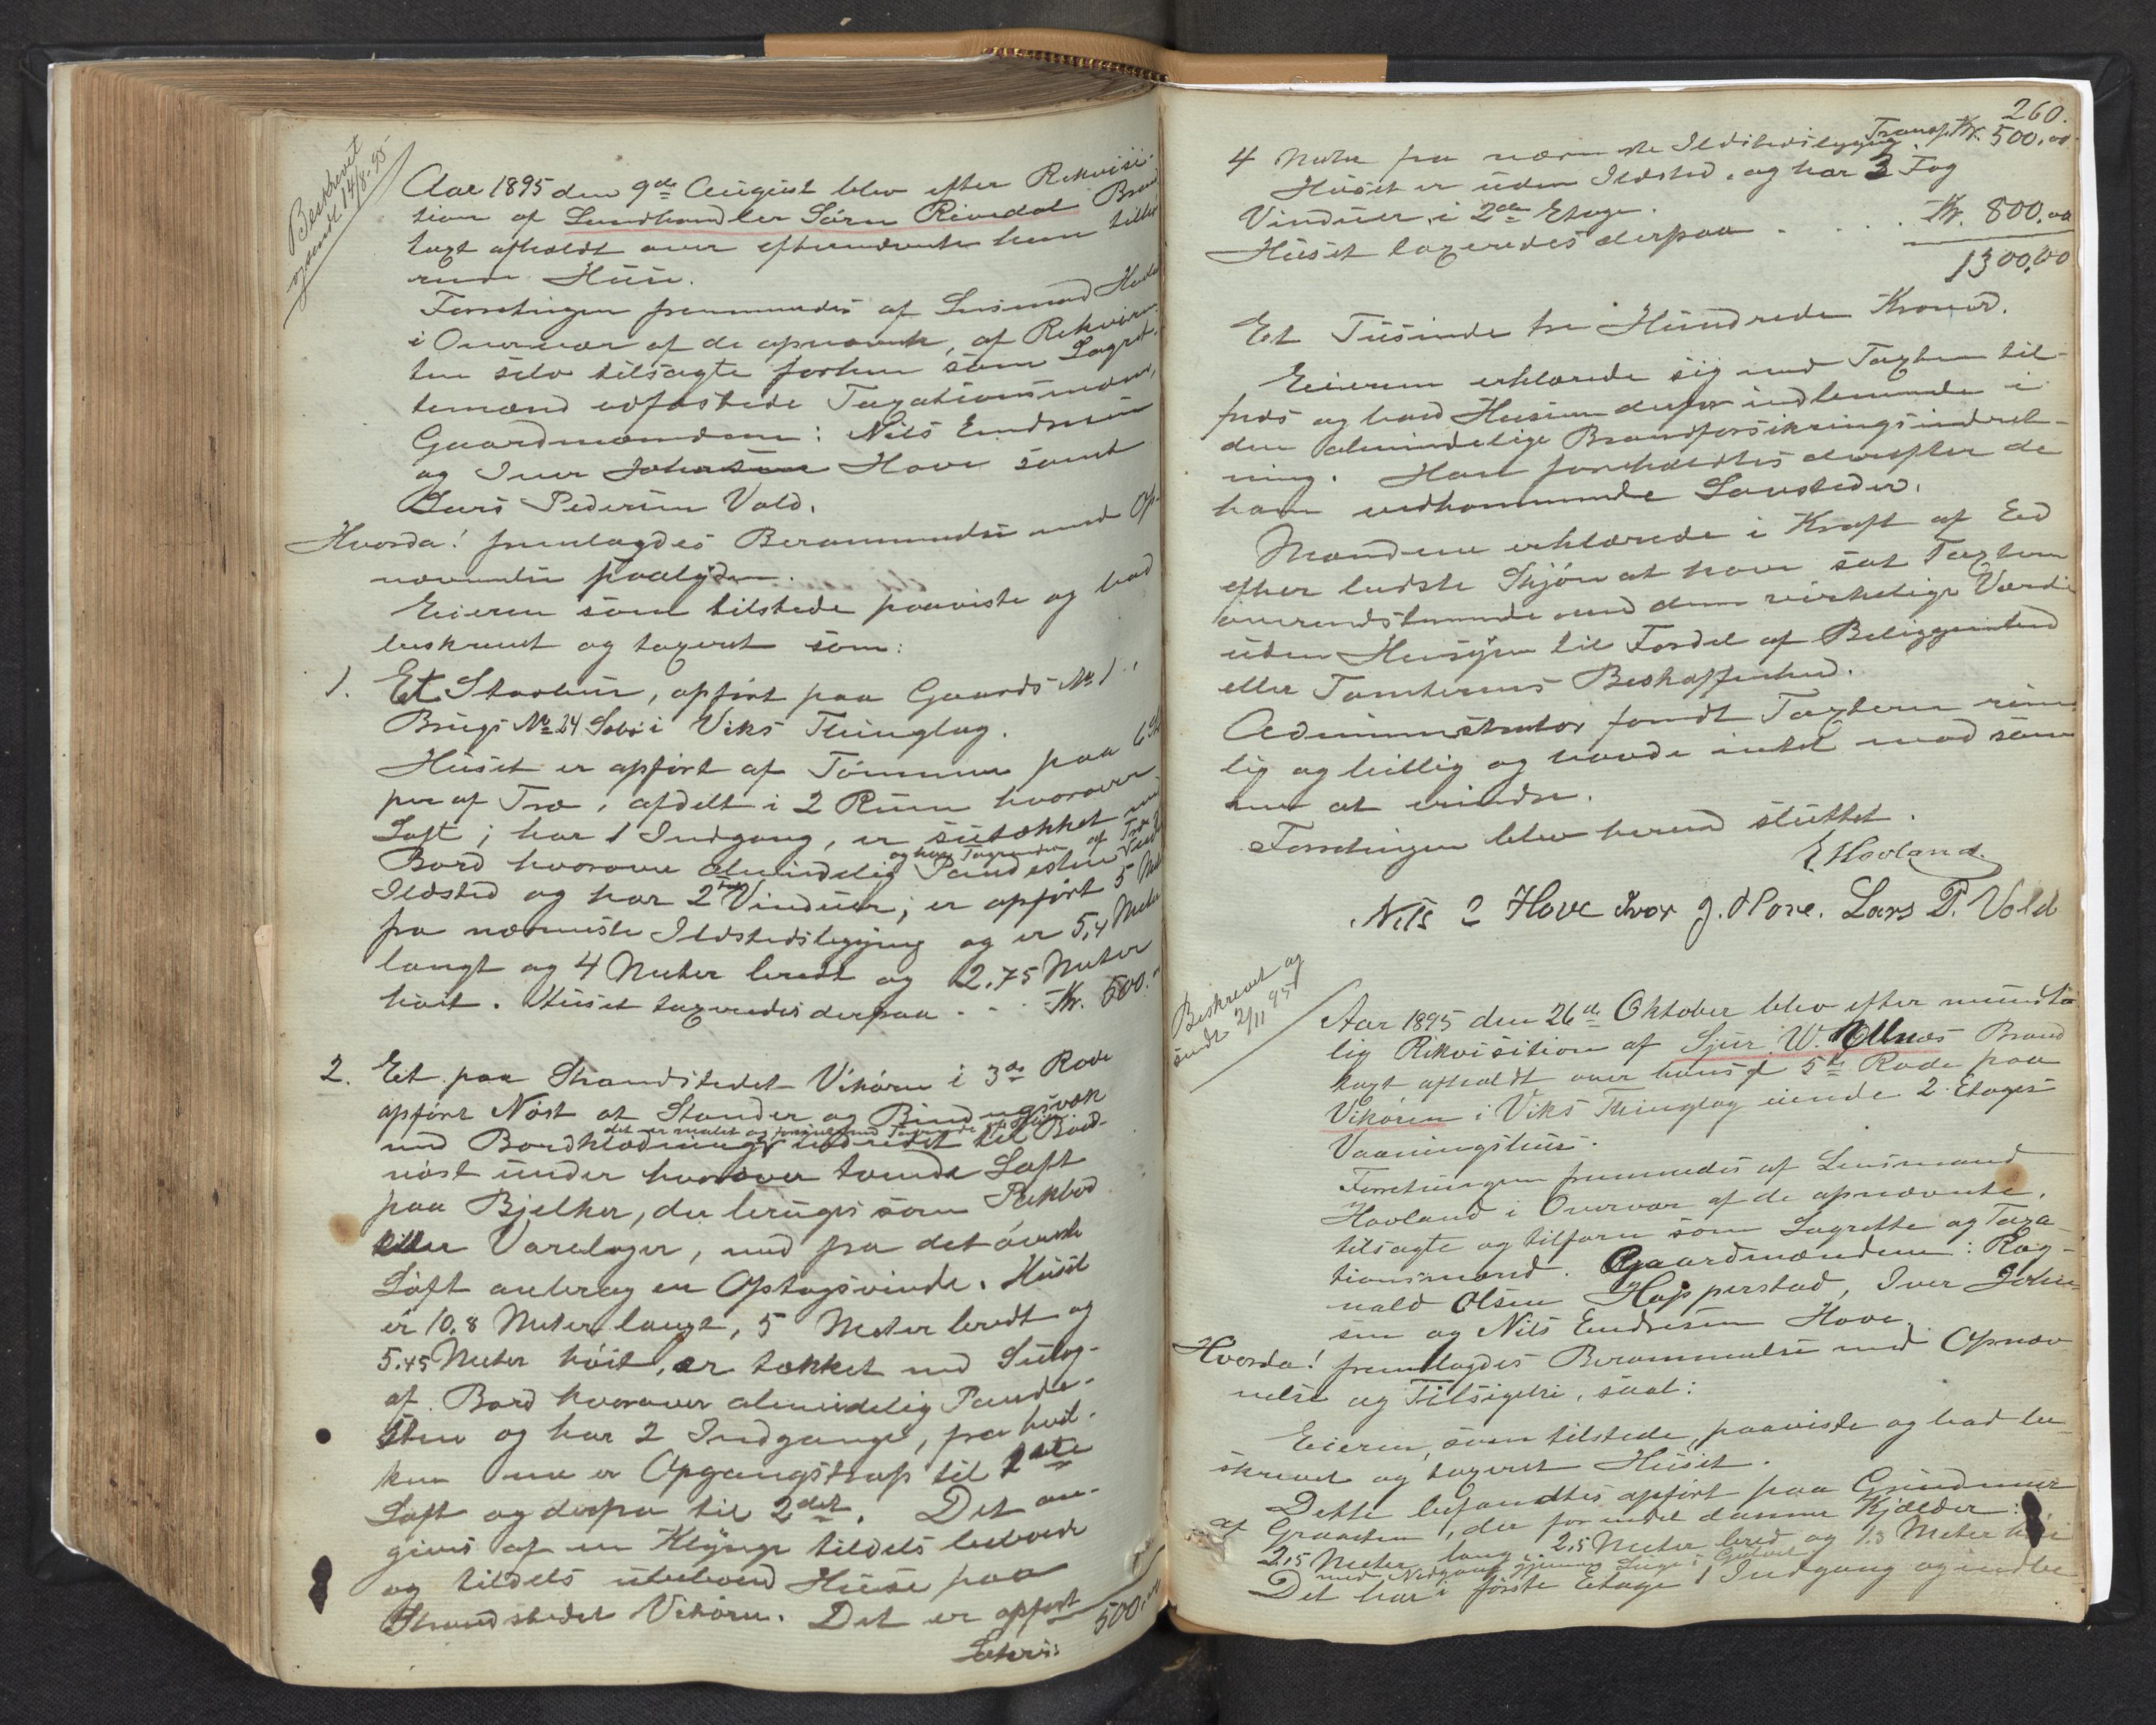 Beskrevet
og sendt 14/8-95
Aar 1895 den 9de August blev efter Rekvisi-
tion af Landhandler Sørn Rivedal Brand
taxt afholdt over efternævnte ham tilhø
rende Huse.
Forretningen fremmedes af Lensmand
i Overvær af de opnævnte, af Rekviren
ten selv tilsagte forhen som Lagret-
temænd edfæstede Taxationsmænd,
Gaardmændene: Nils Endresen
og Iver Johnsen Hove samt
Lars Pedersen Vold.
Hvorda! fremlagdes Berammelse med Op-
nævnelse paalydende.
Eieren som tilstede paaviste og bad
beskrevet og taxeret som:
1. Et Stabur, opført paa Gaards No 1
Brugs No 24 i Viks Thinglag.
Huset er opført af Tømmer paa 6 Stol
per af Træ, afdelt i 2 Rum hvorover
Loft; har 1 Indgang, er sutækket med
og har Tagrender af Træ
Bord hvorover almindelig Pandesten
Ildsted og har 2 Fag Vinduer; er opført 5 Meter
fra nærmeste Ildstedsbygning og er 5,4 Meter
langt og 4 Meter bredt og 2,75 Meter
høit. Huset taxeredes derpaa . . Kr. 500.
2. Et paa Strandstedet Vikøren i 3de Rode
opført Nøst af Stander og Bindingsværk
det er malet og forsynet med Tagrende af
med Bordklædning indredet til Baad-
nøst under hvorover tvende Loft
paa Bjelker, der bruges som Pakbod
eller Varelager, med fra det øverste
Loft anbrag en Optogsvinde. Huset
er 10,8 Meter langt, 5 Meter bredt og
5,45 Meter høit, er tækket med Sutag
af Bord hvorover almindelig Pande-
sten og har 2 Indgange, fra hvil-
ken ene er Opgangstrap til 1ste
Loft og derfra til 2det. Det om-
gives af en Klynge tildels beboede
og tildels ubeboed Huse paa
Strandstedet Vikøren. Det er opført
Lateris: 500,00
260.
Transp. Kr. 500,00
4 Meter fra nærmeste Ildstedsbygning
Huset er uden Ildsted, og har 3 Fag
Vinduer i 2den Etage.
Huset taxeredes derpaa . . . . Kr. 800,00
1300,00
Et Tusinde tre Hundrede Kroner.
Eieren erklærede sig med Taxten til-
freds og bad Husene derfor indlemmede i
den almindelige Brandforsikringsindret-
ning. Han foreholdtes derefter de
ham vedkommende Lovsteder.
Mændene erklærede i Kraft af Ed
efter bedste Skjøn at have sat Taxten
overensstemmende med den virkelige Værdi
uden Hensyn til Fordel af Beliggenhed
eller Tomternes Beskaffenhed.
Administrator fandt Taxten rime
lig og billig og havde intet mod sam
me at erindre.
Forretningen blev herved sluttet.
E Hovland.
Nils E Hove Ivar J. Hove. Lars P. Vold
Beskrevet og
sendt 2/11 95
Aar 1895 den 26de Oktober blev efter mundt-
lig Rekvisition af Sjur W. Ullnæs Brand
taxt afholdt over hans i 5te Rode paa
Vikøren i Viks Thinglag eiende 2 Etages
Vaaningshus.
Forretningen fremmedes af Lensmand
Hovland i Overvær af de opnævnte,
tilsagte og tilforn som Lagrette og Taxa-
tionsmænd. Gaardmændene: Rag-
nald Olsen Hopperstad, Iver John-
sen og Nils Endresen Hove.
Hvorda! fremlagdes Berammelse med Opnæv-
nelse og Tilsigelse, saal:
Eieren, som tilstede, paaviste og bad be-
skrevet og taxeret Huset.
Dette befandtes opført paa Grundmur
af Graasten, der for endel danner Kjælder:
2,5 Meter lang, 2,5 Meter bred og 1,3 Meter høi
med Nedgang gjennem Luge i Gulvet
Det har i første Etage 1 Indgang og indbe